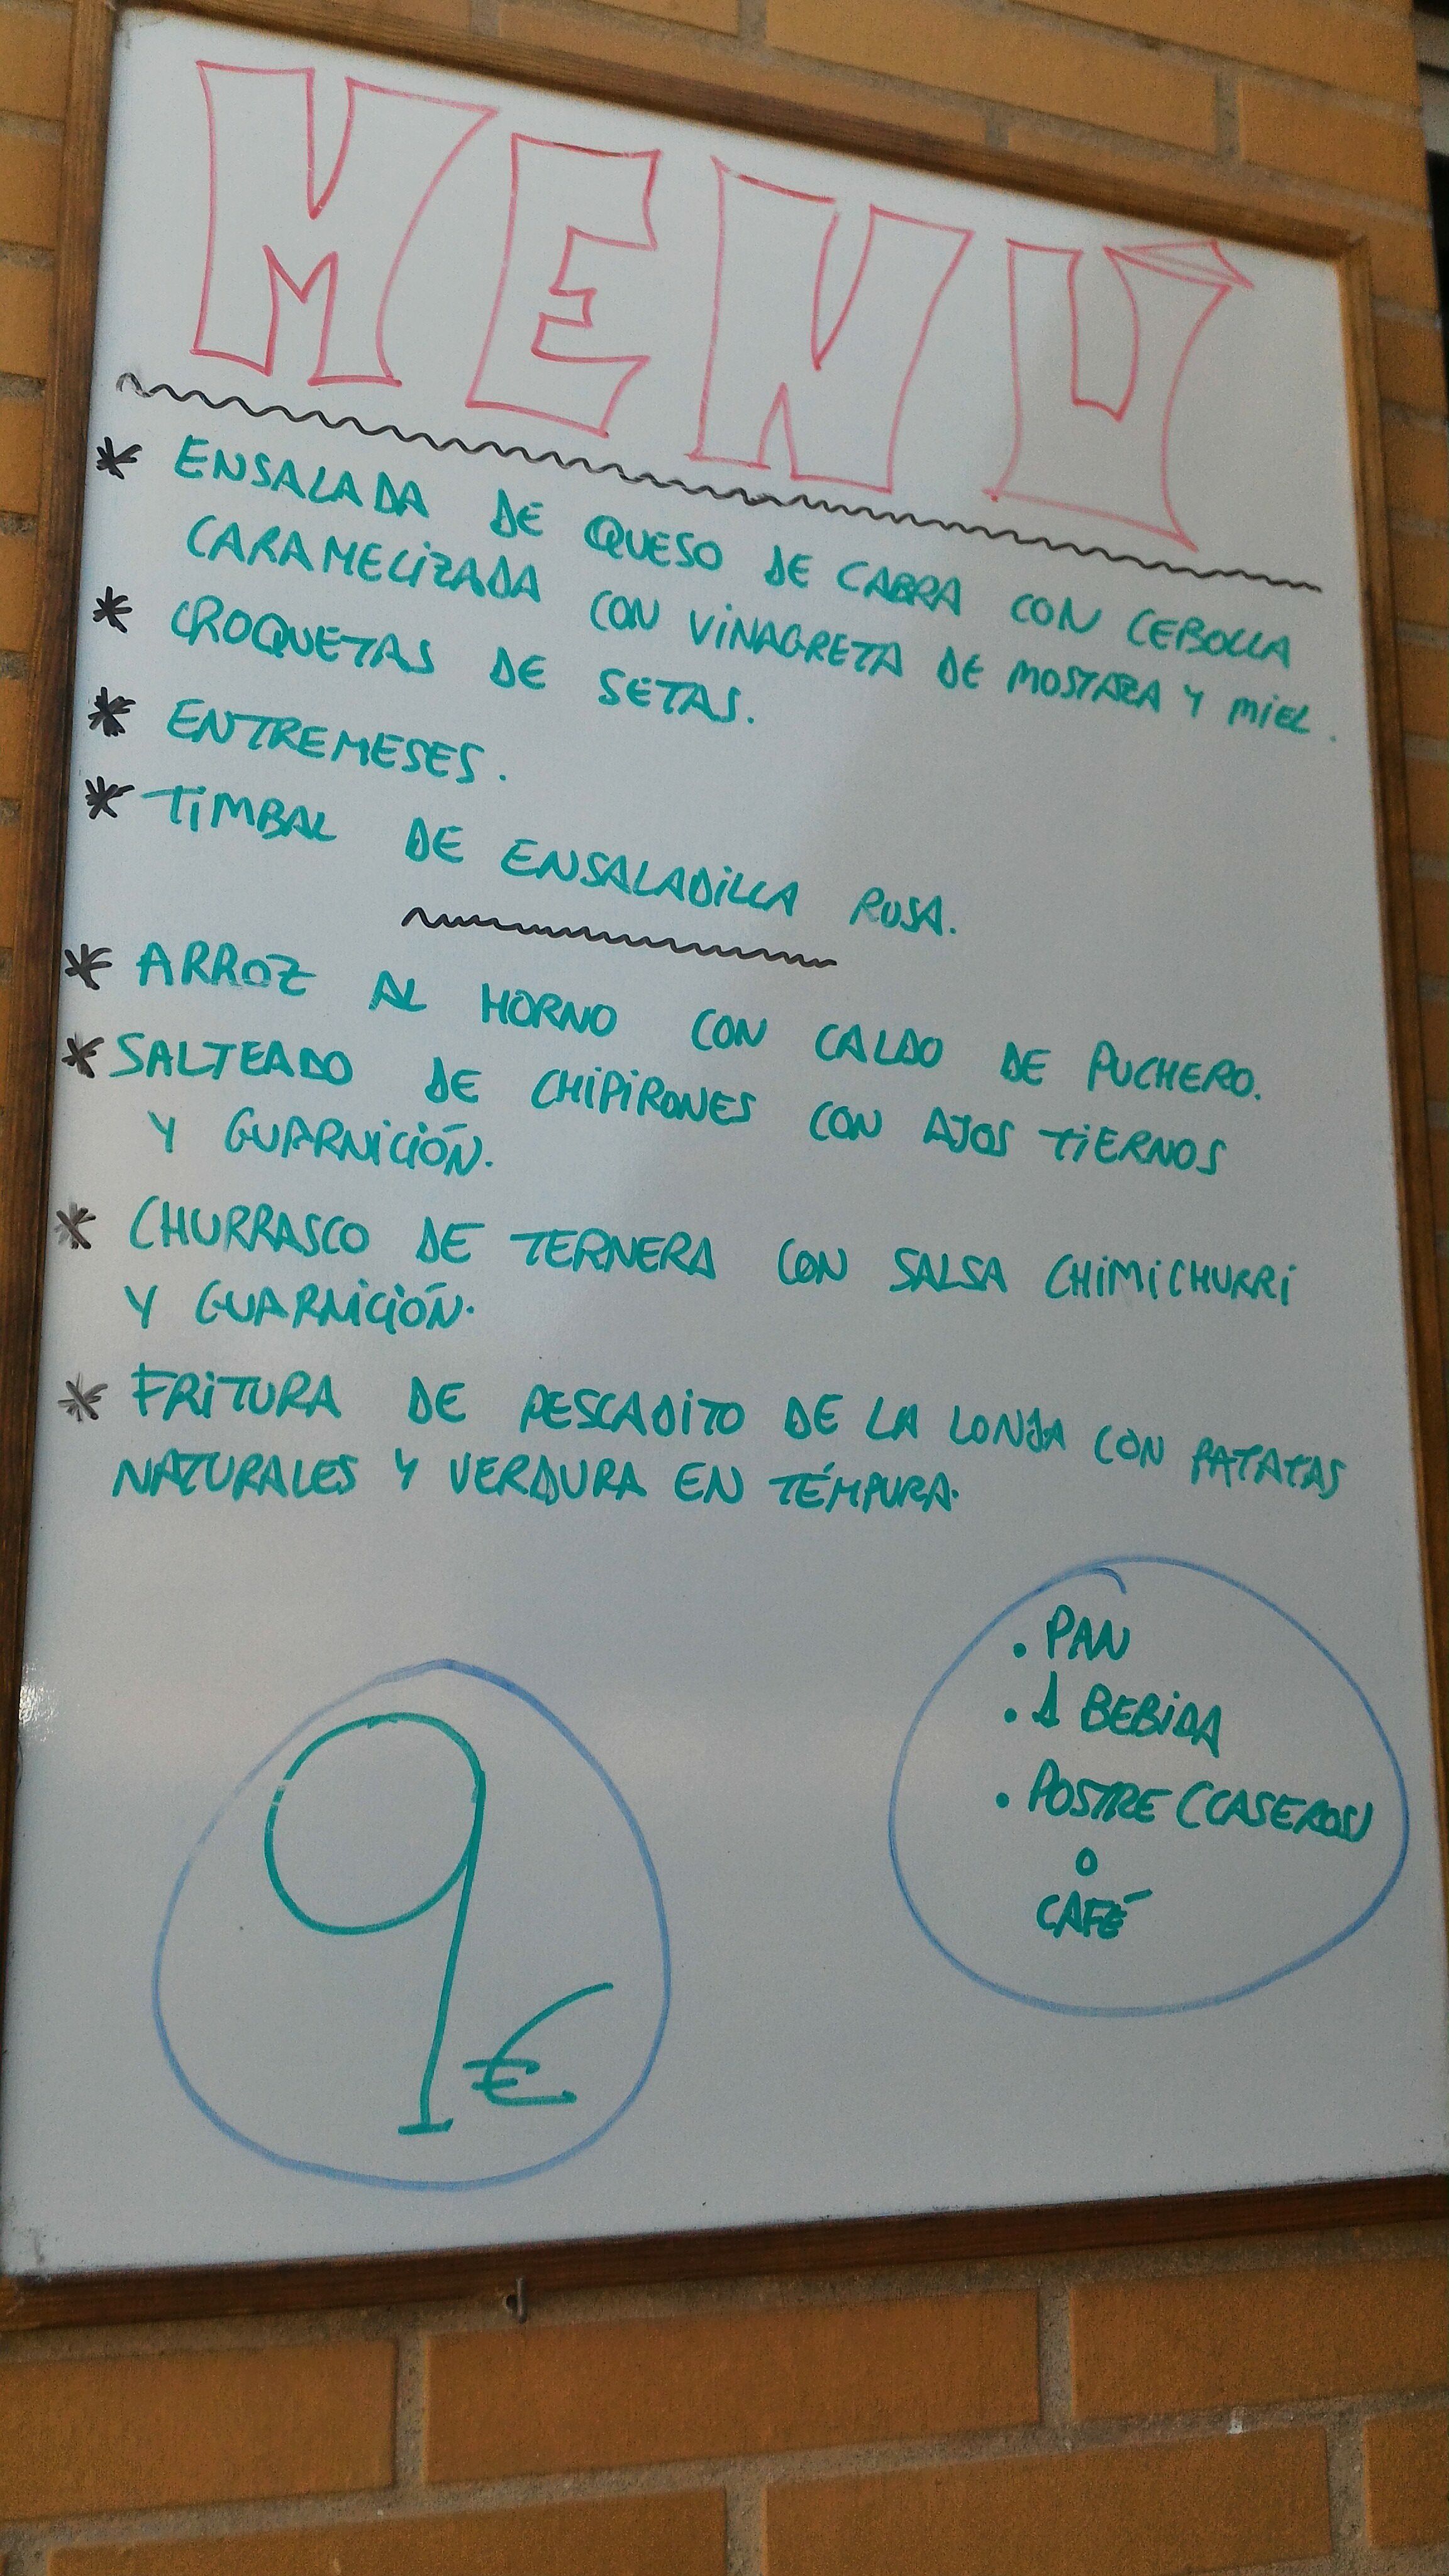 MENÚ
* ENSALADA DE QUESO DE CABRA CON CEBOLLA
CARAMELIZADA CON VINAGRETA DE MOSTAZA Y MIEL.
* CROQUETAS DE SETAS.
* ENTREMESES.
* TIMBAL DE ENSALADILLA RUSA.
* ARROZ AL HORNO CON CALDO DE PUCHERO.
* SALTEADO DE CHIPIRONES CON AJOS TIERNOS
Y GUARNICIÓN.
* CHURRASCO DE TERNERA CON SALSA CHIMICHURRI
Y GUARNICIÓN.
* FRITURA DE PESCADITO DE LA LONJA CON PATATAS
NATURALES Y VERDURA EN TÉMPURA.
• PAN
• 1 BEBIDA
• POSTRE (CASEROS)
O
CAFÉ
9€